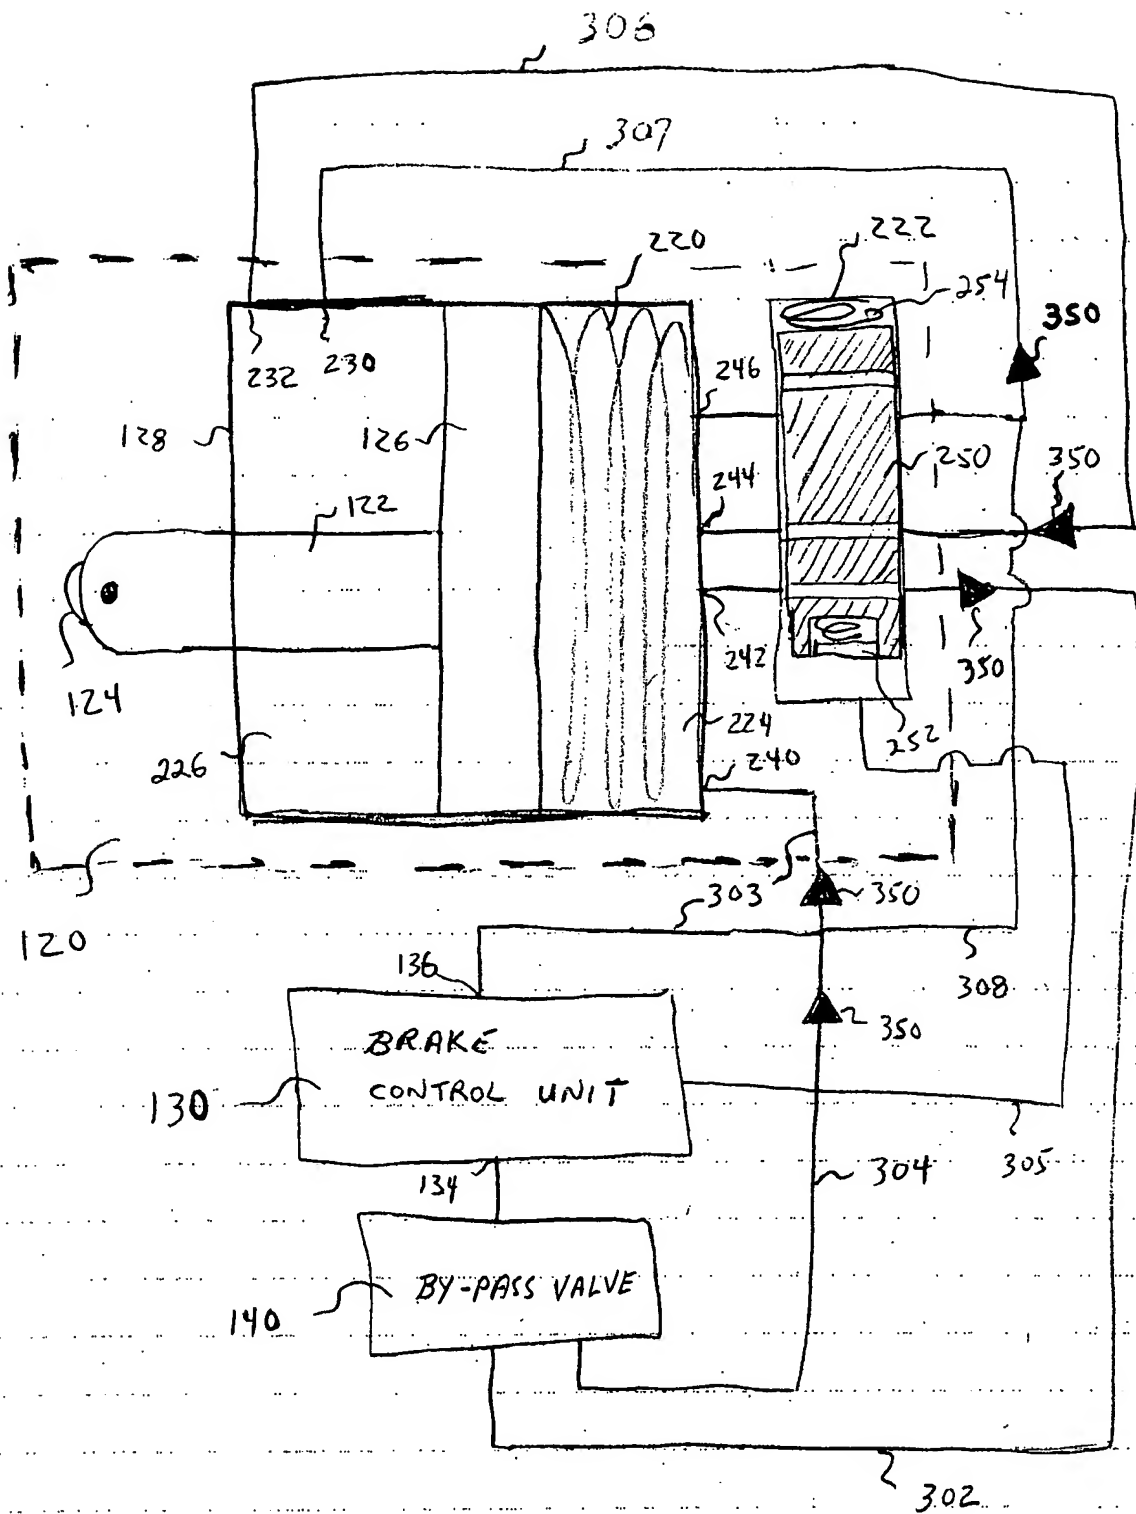 306
307
220
222
254
350
232
230
246
128
126
250
350
244
122
124
242
350
224
252
226
240
303
350
120
136
308
350
BRAKE
CONTROL UNIT
130
134
304
305
BY-PASS VALVE
140
302